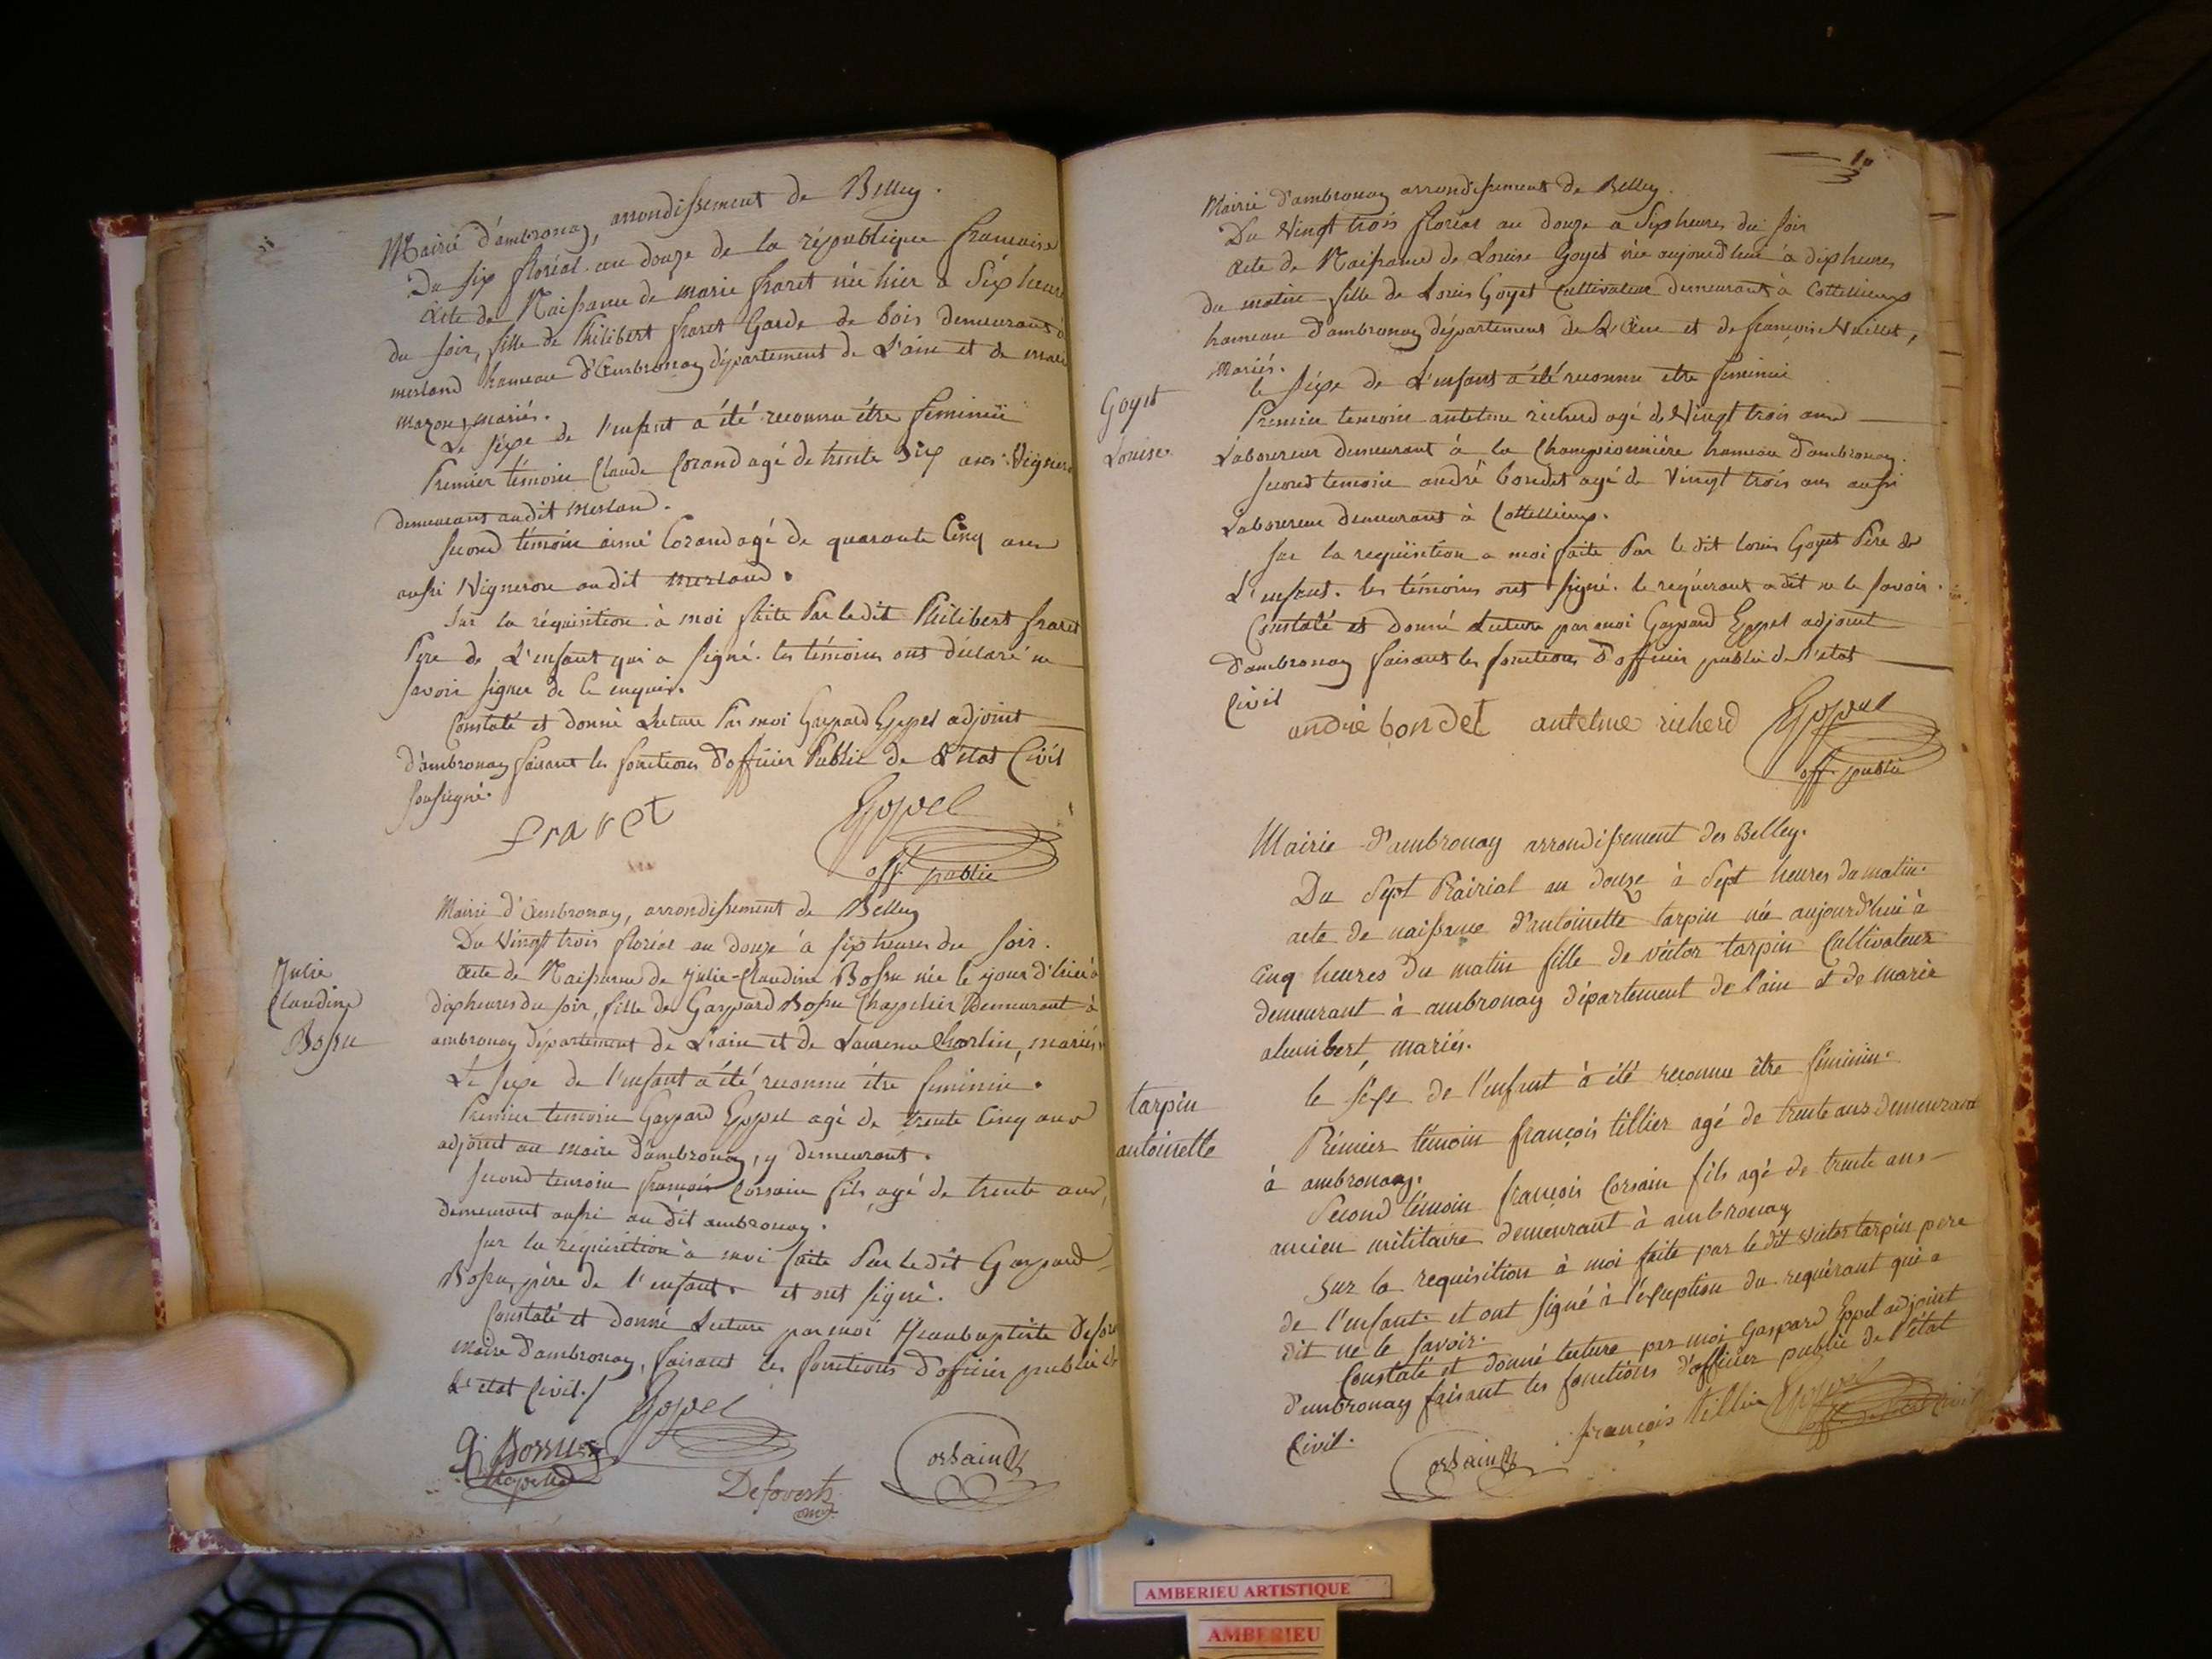 Mairie d'ambronay, arrondissement de Belley.
Du six floréal an douze de la république francaise
Acte de Naissance de marie fraret née hier à Six heures
du soir, fille de Philibert fraret Garde de bois demeurant à
merland hameau d'Ambronay département de L'ain et de marie
mazon, mariés.
Le séxe de l'enfant a été reconnu être feminin
Premier témoin Claude Corand agé de trente six ans Vigneron
demeurant audit merland.
Second témoin aimé Corand agé de quarante Cinq ans
aussi Vigneron au dit merland.
Sur la réquisition à moi faite Par le dit Philibert fraret
Père de L'enfant qui a signé. les témoins ont déclaré ne
savoir signer de ce enquis.
Constaté et donné Lecture Par moi Gaspard Eppel adjoint
d'ambronay faisant les fonctions d'officier Public de L'état Civil
soussigné.
fraret Eppel
off. public
Mairie d'Ambronay, arrondissement de Belley
Du Vingt trois floréal an douze à six heures du soir.
Julie
Claudine
Bossu
Acte de Naissance de Julie-Claudine Bossu née le jour d'hier à
dix heures du soir, fille de Gaspard Bossu Chapelier Demeurant à
ambronay département de L'ain et de Laurence Charlin, mariés.
Le sexe de l'enfant a été reconnu être feminin.
Premier temoin Gaspard Eppel agé de trente Cinq ans
adjoint au maire d'ambronay, y demeurant.
Second temoin françois Corsain fils, agé de trente ans,
demeurant aussi au dit ambronay.
Sur la réquisition à moi faite Par le dit Gaspard
Bossu, père de l'enfant. et ont signé.
Constaté et donné Lecture par moi Jean baptiste
maire d'ambronay, faisant les fonctions d'officier public de
L'etat Civil./
Eppel
G. Bossu
Corsain
10
Mairie d'ambronay arrondissement de Belley.
Du Vingt trois floréal an douze a Six heures du soir
Acte de Naissance de Louise Goyet née aujourd'hui à dix heures
du matin fille de Louis Goyet Cultivateur demeurant à Cottelieux
hameau d'ambronay département de L'Ain et de francoise Vaillet,
Mariés.
le séxe de L'enfant a été reconnu etre feminin
Goyet
Louise
Premier temoin antelme richerd agé de Vingt trois ans
Laboureur demeurant à la Championnière hameau d'ambronay.
Second temoin andré bondet agé de Vingt trois ans aussi
Laboureur demeurant à Cottelieux.
Sur la requisition a moi faite Par le dit Louis Goyet Père de
L'enfant. les témoins ont signé. le requérant a dit ne le savoir.
Constaté et donné Lecture par moi Gaspard Eppel adjoint
d'ambronay faisant les fonctions d'officier public de l'etat
Civil
andré bondet antelme richerd Eppel
off. public
Mairie d'ambronay arrondissement de Belley.
Du Sept Prairial an douze à Sept heures du matin.
acte de naissance d'antoinette tarpin née aujourd'hui à
cinq heures du matin fille de victor tarpin Cultivateur
demeurant à ambronay département de l'ain et de marie
humbert mariés.
le séxe de l'enfant à été reconnu être féminin.
tarpin
antoinette
Prémier témoin françois tillier agé de trente ans demeurant
à ambronay.
Second témoin françois Corsain fils agé de trente ans
ancien militaire demeurant à ambronay
Sur la requisition à moi faite par le dit victor tarpin pere
de l'enfant. et ont signé à l'éxception du requérant qui a
dit ne le savoir.
Constaté et donné lecture par moi Gaspard Eppel adjoint
d'ambronay faisant les fonctions d'officier public de l'état
Civil.
Corsain françois tillier Eppel
AMBERIEU ARTISTIQUE
AMBERIEU